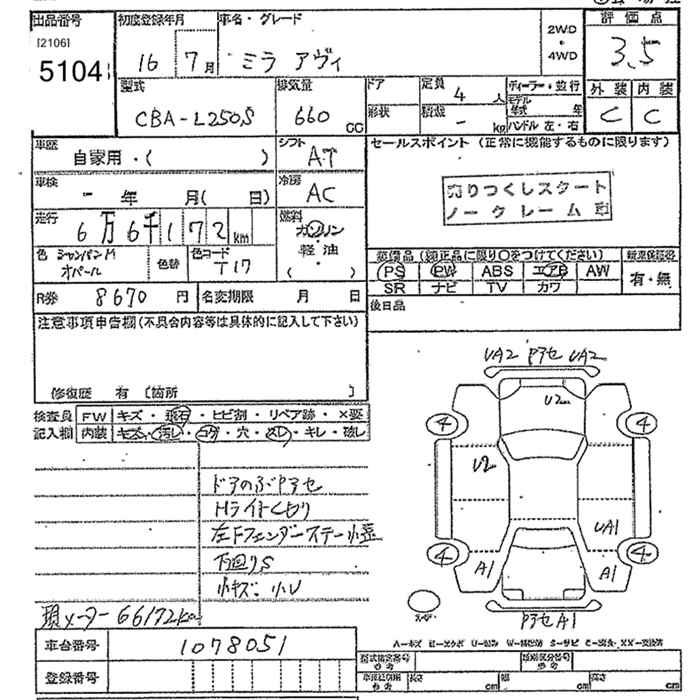 出品番号
[2106]
5104
初度登録年月
16 7月
車名・グレード
ミラ アヴィ
2WD
・
4WD
評価点
3.5
型式
CBA-L250S
排気量
660
CC
ドア
形状
定員
4 人
積載
- kg
ディーラー・並行
モデル
年式 年
ハンドル 左・右
外装 内装
C C
車歴
自家用・( )
シフト
AT
セールスポイント (正常に機能するものに限ります)
売りつくしスタート
ノークレーム
車検
- 年 月( 日)
冷房
AC
走行
6万6千172km
燃料
ガソリン
・
軽油
( )
色
シャンパンM
オパール
色替
色コード
T17
装備品 (純正品に限り○をつけてください)
PS PW ABS エアB AW
SR ナビ TV カワ
新車保証書
有・無
R券 8670 円
名変期限 月 日
後日品
注意事項申告欄(不具合内容等は具体的に記入して下さい)
修復歴 有 [箇所 ]
検査員
記入欄
FW キズ・飛石・ヒビ割・リペア跡・×要
内装 キズ・汚レ・コゲ・穴・スレ・キレ・破レ
ドアのぶPアセ
Hライトくもり
左Fフェンダーステー小歪
下回りS
小キズ・小U
現メーター66172km
車台番号 1078051
登録番号
UA2 Pアセ UA2
U2
4 4
U2
UA1
4 4
A1 A1
PアセA1
型式指定番号
類別区分番号
長さ cm 幅 cm 高さ cm